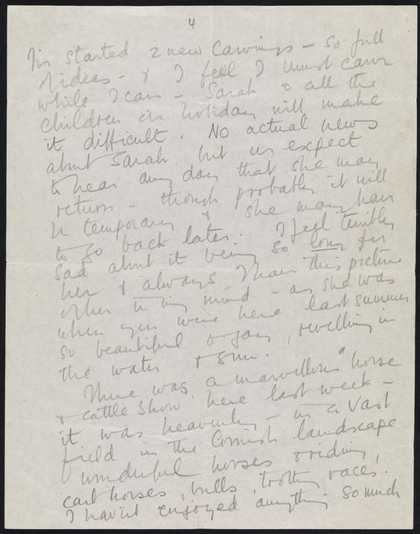 4
I've started 2 new carvings – so full
of ideas – & I feel I must carve
while I can – Sarah & all the
children on holiday will make
it difficult. No actual news
about Sarah but we expect
to hear any day that she may
return – though probably it will
be temporary & she may have
to go back later. I feel terribly
sad about it being so long for
her & always I have this picture
of her in my mind – as she was
when you were here last summer
so beautiful & gay, revelling in
the water & sun.
There was a marvellous horse
& cattle show here last week –
it was heavenly – in a vast
field in the Cornish landscape
wonderful horses & riding,
cart horses, bulls, trotting races.
I havn't enjoyed anything so much